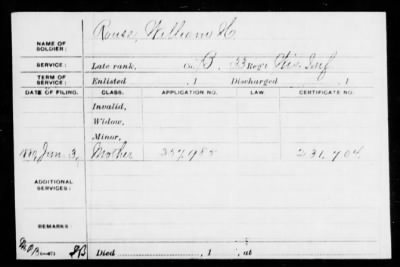 NAME OF SOLDIER: Rouse, William H
SERVICE: Late rank, Co. B, 33 Reg't Wis Inf
TERM OF SERVICE: Enlisted , 1 Discharged , 1
DATE OF FILING. CLASS. APPLICATION NO. LAW. CERTIFICATE NO.
Invalid,
Widow,
Minor,
Jan. 3, Mother 257,985 231,704
ADDITIONAL SERVICES:
REMARKS:
Died , 1 , at